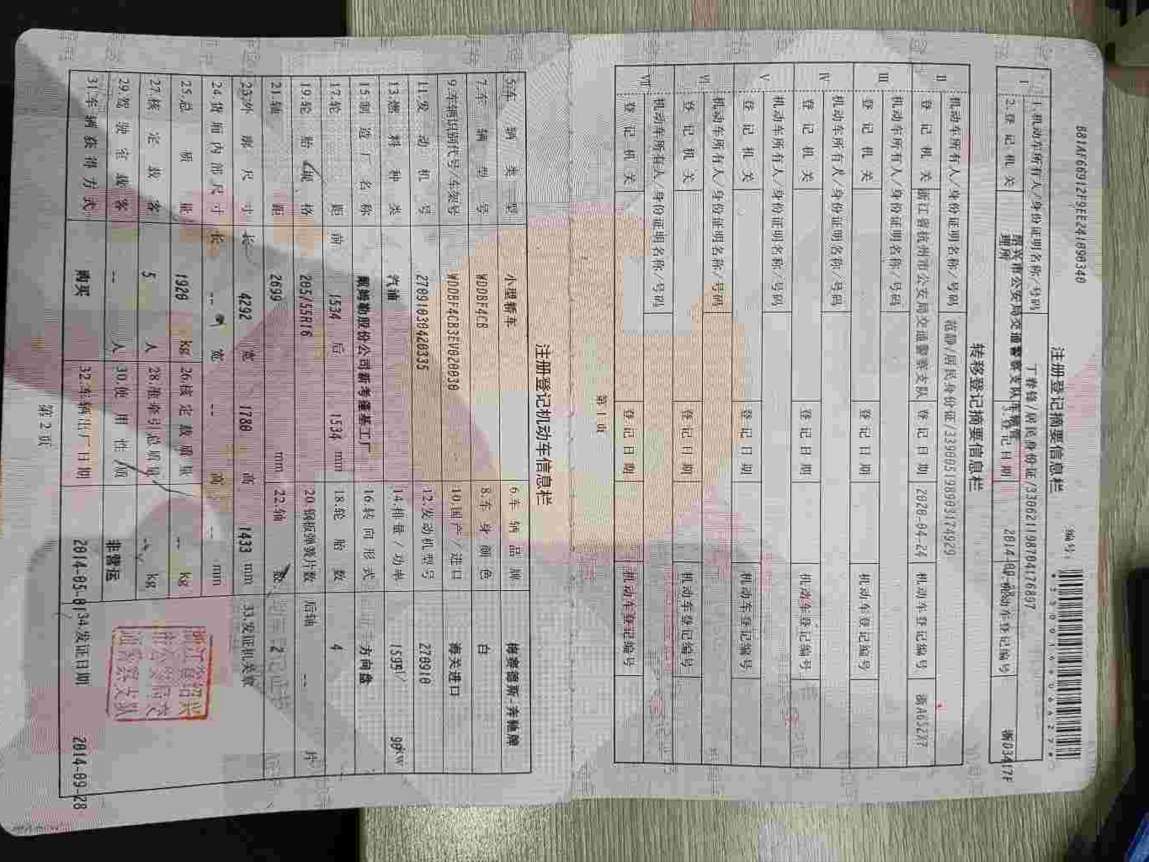 BB1AF66912F9EE241090340
注册登记摘要信息栏
编号:
I
1.机动车所有人/身份证明名称/号码 丁春锋/居民身份证/330621198704176897
2.登记机关 绍兴市公安局交通警察支队车辆管理所 3.登记日期 机动车登记编号 浙D34T7F
转移登记摘要信息栏
II
机动车所有人/身份证明名称/号码 范静/居民身份证/339005198903174929
登记机关 浙江省杭州市公安局交通警察支队 登记日期 2020-04-24 机动车登记编号 浙A652X7
III
机动车所有人/身份证明名称/号码
登记机关 登记日期 机动车登记编号
IV
机动车所有人/身份证明名称/号码
登记机关 登记日期 机动车登记编号
V
机动车所有人/身份证明名称/号码
登记机关 登记日期 机动车登记编号
VI
机动车所有人/身份证明名称/号码
登记机关 登记日期 机动车登记编号
VII
机动车所有人/身份证明名称/号码
登记机关 登记日期 机动车登记编号
第1页
注册登记机动车信息栏
5.车辆类型 小型轿车 6.车辆品牌 梅赛德斯-奔驰牌
7.车辆型号 WDDBF4CB 8.车身颜色 白
9.车辆识别代号/车架号 WDDBF4CB3EV020030 10.国产/进口 海关进口
11.发动机号 27091030420335 12.发动机型号 270910
13.燃料种类 汽油 14.排量/功率 1595 ml/ 90 kw
15.制造厂名称 戴姆勒股份公司新考堡基工厂 16.转向形式 方向盘
17.轮距 前 1534 后 1534 mm 18.轮胎数 4
19.轮胎规格 205/55R16 20.钢板弹簧片数 后轴 -- 片
21.轴距 2699 mm 22.轴数 2
23.外廓尺寸 长 4292 宽 1780 高 1433 mm 33.发证机关章
24.货厢内部尺寸 长 -- 宽 -- 高 -- mm
25.总质量 1920 kg 26.核定载质量 -- kg
27.核定载客 5 人 28.准牵引总质量 -- kg
29.驾驶室载客 -- 人 30.使用性质 非营运
31.车辆获得方式 购买 32.车辆出厂日期 2014-05-01 34.发证日期 2014-09-28
浙江省绍兴
市公安局交
通警察支队
第2页